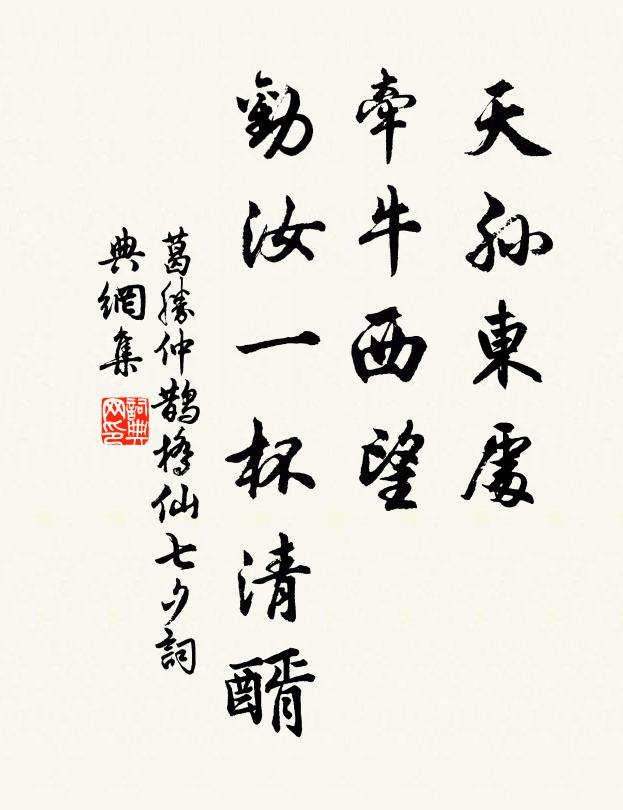 天孫東處
牽牛西望
勸汝一杯清醑
葛勝仲鵲橋仙七夕詞
典網集
詞典网印